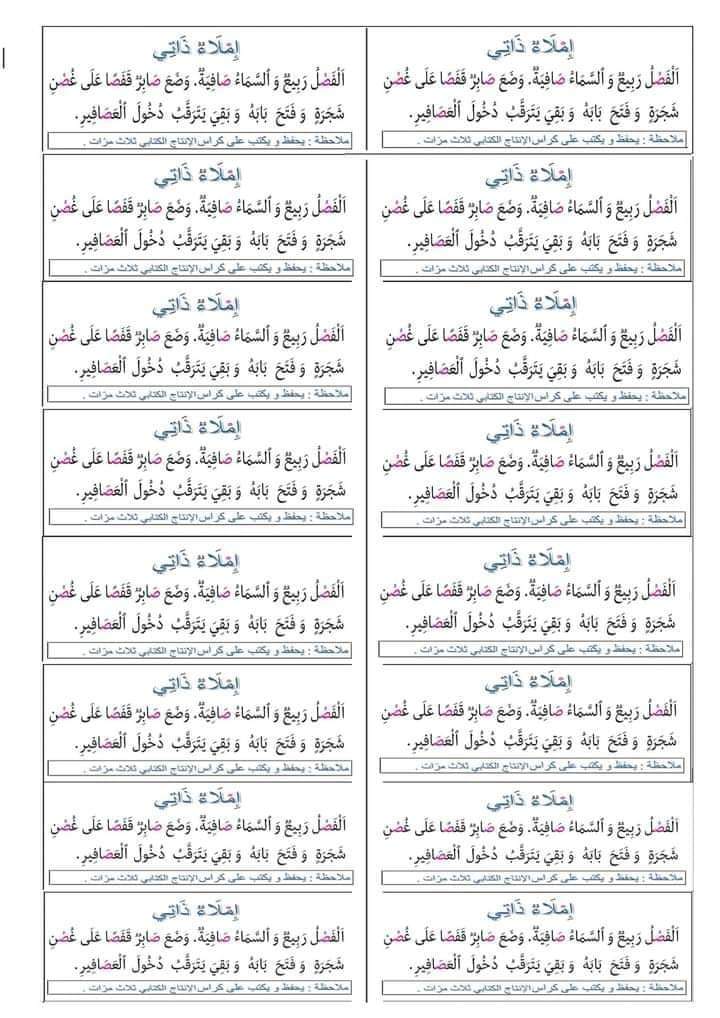 إِمْلَاءٌ ذَاتِي
اَلْفَصْلُ رَبِيعٌ وَ ٱلسَّمَاءُ صَافِيَةٌ. وَضَعَ صَابِرٌ قَفَصًا عَلَى غُصْنِ
شَجَرَةٍ وَ فَتَحَ بَابَهُ وَ بَقِيَ يَتَرَقَّبُ دُخُولَ ٱلْعَصَافِيرِ.
ملاحظة : يحفظ و يكتب على كراس الإنتاج الكتابي ثلاث مرات .
إِمْلَاءٌ ذَاتِي
اَلْفَصْلُ رَبِيعٌ وَ ٱلسَّمَاءُ صَافِيَةٌ. وَضَعَ صَابِرٌ قَفَصًا عَلَى غُصْنِ
شَجَرَةٍ وَ فَتَحَ بَابَهُ وَ بَقِيَ يَتَرَقَّبُ دُخُولَ ٱلْعَصَافِيرِ.
ملاحظة : يحفظ و يكتب على كراس الإنتاج الكتابي ثلاث مرات .
إِمْلَاءٌ ذَاتِي
اَلْفَصْلُ رَبِيعٌ وَ ٱلسَّمَاءُ صَافِيَةٌ. وَضَعَ صَابِرٌ قَفَصًا عَلَى غُصْنِ
شَجَرَةٍ وَ فَتَحَ بَابَهُ وَ بَقِيَ يَتَرَقَّبُ دُخُولَ ٱلْعَصَافِيرِ.
ملاحظة : يحفظ و يكتب على كراس الإنتاج الكتابي ثلاث مرات .
إِمْلَاءٌ ذَاتِي
اَلْفَصْلُ رَبِيعٌ وَ ٱلسَّمَاءُ صَافِيَةٌ. وَضَعَ صَابِرٌ قَفَصًا عَلَى غُصْنِ
شَجَرَةٍ وَ فَتَحَ بَابَهُ وَ بَقِيَ يَتَرَقَّبُ دُخُولَ ٱلْعَصَافِيرِ.
ملاحظة : يحفظ و يكتب على كراس الإنتاج الكتابي ثلاث مرات .
إِمْلَاءٌ ذَاتِي
اَلْفَصْلُ رَبِيعٌ وَ ٱلسَّمَاءُ صَافِيَةٌ. وَضَعَ صَابِرٌ قَفَصًا عَلَى غُصْنِ
شَجَرَةٍ وَ فَتَحَ بَابَهُ وَ بَقِيَ يَتَرَقَّبُ دُخُولَ ٱلْعَصَافِيرِ.
ملاحظة : يحفظ و يكتب على كراس الإنتاج الكتابي ثلاث مرات .
إِمْلَاءٌ ذَاتِي
اَلْفَصْلُ رَبِيعٌ وَ ٱلسَّمَاءُ صَافِيَةٌ. وَضَعَ صَابِرٌ قَفَصًا عَلَى غُصْنِ
شَجَرَةٍ وَ فَتَحَ بَابَهُ وَ بَقِيَ يَتَرَقَّبُ دُخُولَ ٱلْعَصَافِيرِ.
ملاحظة : يحفظ و يكتب على كراس الإنتاج الكتابي ثلاث مرات .
إِمْلَاءٌ ذَاتِي
اَلْفَصْلُ رَبِيعٌ وَ ٱلسَّمَاءُ صَافِيَةٌ. وَضَعَ صَابِرٌ قَفَصًا عَلَى غُصْنِ
شَجَرَةٍ وَ فَتَحَ بَابَهُ وَ بَقِيَ يَتَرَقَّبُ دُخُولَ ٱلْعَصَافِيرِ.
ملاحظة : يحفظ و يكتب على كراس الإنتاج الكتابي ثلاث مرات .
إِمْلَاءٌ ذَاتِي
اَلْفَصْلُ رَبِيعٌ وَ ٱلسَّمَاءُ صَافِيَةٌ. وَضَعَ صَابِرٌ قَفَصًا عَلَى غُصْنِ
شَجَرَةٍ وَ فَتَحَ بَابَهُ وَ بَقِيَ يَتَرَقَّبُ دُخُولَ ٱلْعَصَافِيرِ.
ملاحظة : يحفظ و يكتب على كراس الإنتاج الكتابي ثلاث مرات .
إِمْلَاءٌ ذَاتِي
اَلْفَصْلُ رَبِيعٌ وَ ٱلسَّمَاءُ صَافِيَةٌ. وَضَعَ صَابِرٌ قَفَصًا عَلَى غُصْنِ
شَجَرَةٍ وَ فَتَحَ بَابَهُ وَ بَقِيَ يَتَرَقَّبُ دُخُولَ ٱلْعَصَافِيرِ.
ملاحظة : يحفظ و يكتب على كراس الإنتاج الكتابي ثلاث مرات .
إِمْلَاءٌ ذَاتِي
اَلْفَصْلُ رَبِيعٌ وَ ٱلسَّمَاءُ صَافِيَةٌ. وَضَعَ صَابِرٌ قَفَصًا عَلَى غُصْنِ
شَجَرَةٍ وَ فَتَحَ بَابَهُ وَ بَقِيَ يَتَرَقَّبُ دُخُولَ ٱلْعَصَافِيرِ.
ملاحظة : يحفظ و يكتب على كراس الإنتاج الكتابي ثلاث مرات .
إِمْلَاءٌ ذَاتِي
اَلْفَصْلُ رَبِيعٌ وَ ٱلسَّمَاءُ صَافِيَةٌ. وَضَعَ صَابِرٌ قَفَصًا عَلَى غُصْنِ
شَجَرَةٍ وَ فَتَحَ بَابَهُ وَ بَقِيَ يَتَرَقَّبُ دُخُولَ ٱلْعَصَافِيرِ.
ملاحظة : يحفظ و يكتب على كراس الإنتاج الكتابي ثلاث مرات .
إِمْلَاءٌ ذَاتِي
اَلْفَصْلُ رَبِيعٌ وَ ٱلسَّمَاءُ صَافِيَةٌ. وَضَعَ صَابِرٌ قَفَصًا عَلَى غُصْنِ
شَجَرَةٍ وَ فَتَحَ بَابَهُ وَ بَقِيَ يَتَرَقَّبُ دُخُولَ ٱلْعَصَافِيرِ.
ملاحظة : يحفظ و يكتب على كراس الإنتاج الكتابي ثلاث مرات .
إِمْلَاءٌ ذَاتِي
اَلْفَصْلُ رَبِيعٌ وَ ٱلسَّمَاءُ صَافِيَةٌ. وَضَعَ صَابِرٌ قَفَصًا عَلَى غُصْنِ
شَجَرَةٍ وَ فَتَحَ بَابَهُ وَ بَقِيَ يَتَرَقَّبُ دُخُولَ ٱلْعَصَافِيرِ.
ملاحظة : يحفظ و يكتب على كراس الإنتاج الكتابي ثلاث مرات .
إِمْلَاءٌ ذَاتِي
اَلْفَصْلُ رَبِيعٌ وَ ٱلسَّمَاءُ صَافِيَةٌ. وَضَعَ صَابِرٌ قَفَصًا عَلَى غُصْنِ
شَجَرَةٍ وَ فَتَحَ بَابَهُ وَ بَقِيَ يَتَرَقَّبُ دُخُولَ ٱلْعَصَافِيرِ.
ملاحظة : يحفظ و يكتب على كراس الإنتاج الكتابي ثلاث مرات .
إِمْلَاءٌ ذَاتِي
اَلْفَصْلُ رَبِيعٌ وَ ٱلسَّمَاءُ صَافِيَةٌ. وَضَعَ صَابِرٌ قَفَصًا عَلَى غُصْنِ
شَجَرَةٍ وَ فَتَحَ بَابَهُ وَ بَقِيَ يَتَرَقَّبُ دُخُولَ ٱلْعَصَافِيرِ.
ملاحظة : يحفظ و يكتب على كراس الإنتاج الكتابي ثلاث مرات .
إِمْلَاءٌ ذَاتِي
اَلْفَصْلُ رَبِيعٌ وَ ٱلسَّمَاءُ صَافِيَةٌ. وَضَعَ صَابِرٌ قَفَصًا عَلَى غُصْنِ
شَجَرَةٍ وَ فَتَحَ بَابَهُ وَ بَقِيَ يَتَرَقَّبُ دُخُولَ ٱلْعَصَافِيرِ.
ملاحظة : يحفظ و يكتب على كراس الإنتاج الكتابي ثلاث مرات .